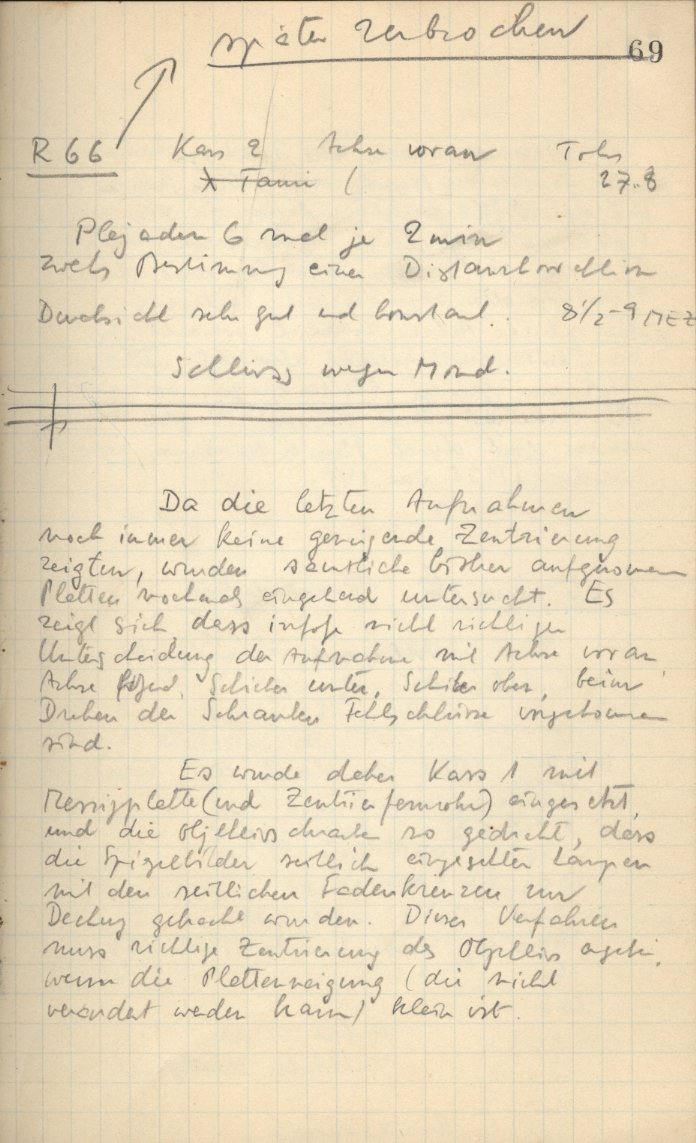 später zerbrochen
69
R 66 Kass 2 Achse voran
27.8
Plejaden 6 mal je 2 min
zwecks Bestimmung einer
Durchsicht sehr gut und konstant. 8 1/2-9 MEZ
Schluss wegen Mond.
Da die letzten Aufnahmen
noch immer keine genügende Zentrierung
zeigten, wurden sämtliche bisher aufgenommenen
Platten nochmals eingehend untersucht. Es
zeigt sich, dass infolge nicht richtiger
Unterscheidung der Aufnahme mit Achse voran
Achse folgend, Schieber unten, Schieber oben, beim
Drehen der Schrauben Fehlschlüsse vorgekommen
sind.
Es wurde daher Kass 1 mit
Messingplatte (und Zentrierfernrohr) eingesetzt,
und die Objektivschrauben so gedreht, dass
die Spiegelbilder seitlich eingesetzter Lampen
mit den seitlichen Fadenkreuzen zur
Deckung gebracht wurden. Dieses Verfahren
muss richtige Zentrierung des Objektivs ergeben,
wenn die Plattenneigung (die nicht
verändert werden kann) klein ist.